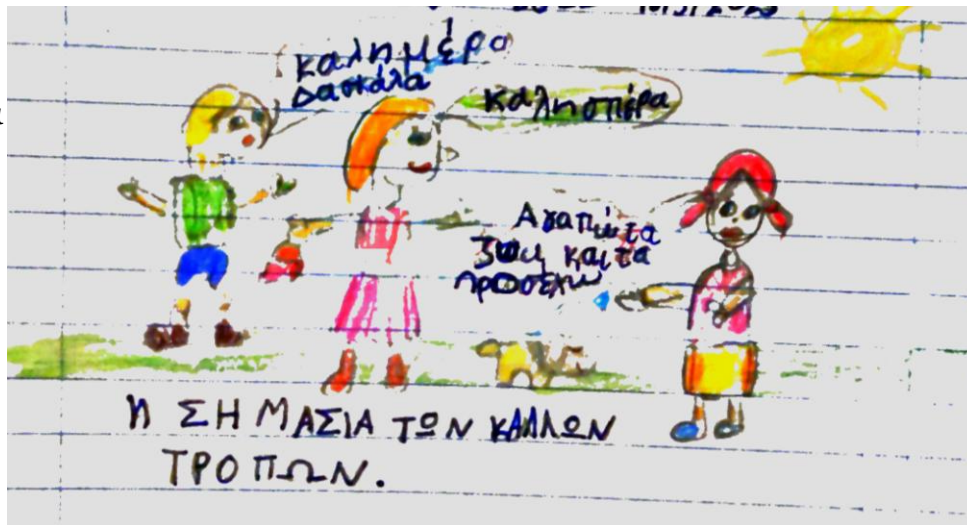 καλημέρα
Δασκάλα
καλησπέρα
Αγαπώ τα
ζώα και τα
προσέχω
Η ΣΗΜΑΣΙΑ ΤΩΝ ΚΑΛΛΩΝ
ΤΡΟΠΩΝ.